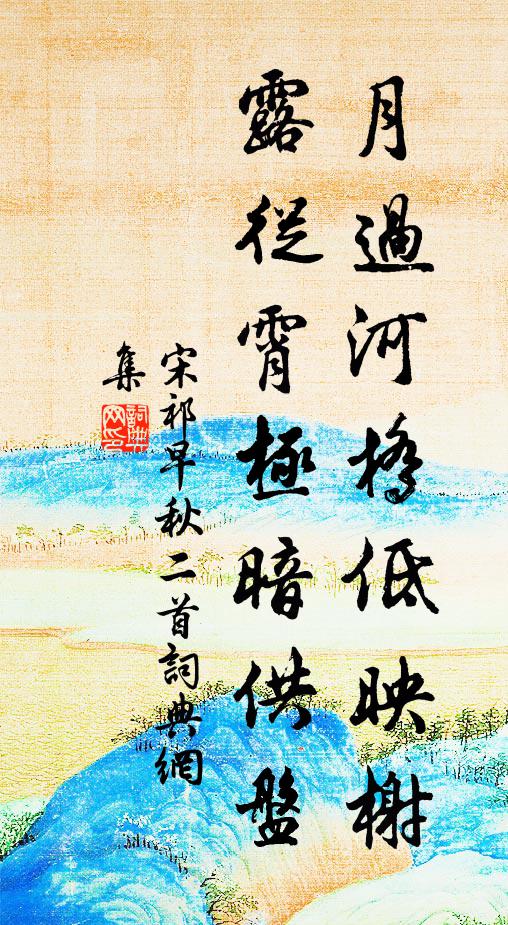 月過河橋低映榭
露從霄極暗供盤
宋祁早秋二首詞典網
集
詞典
网印